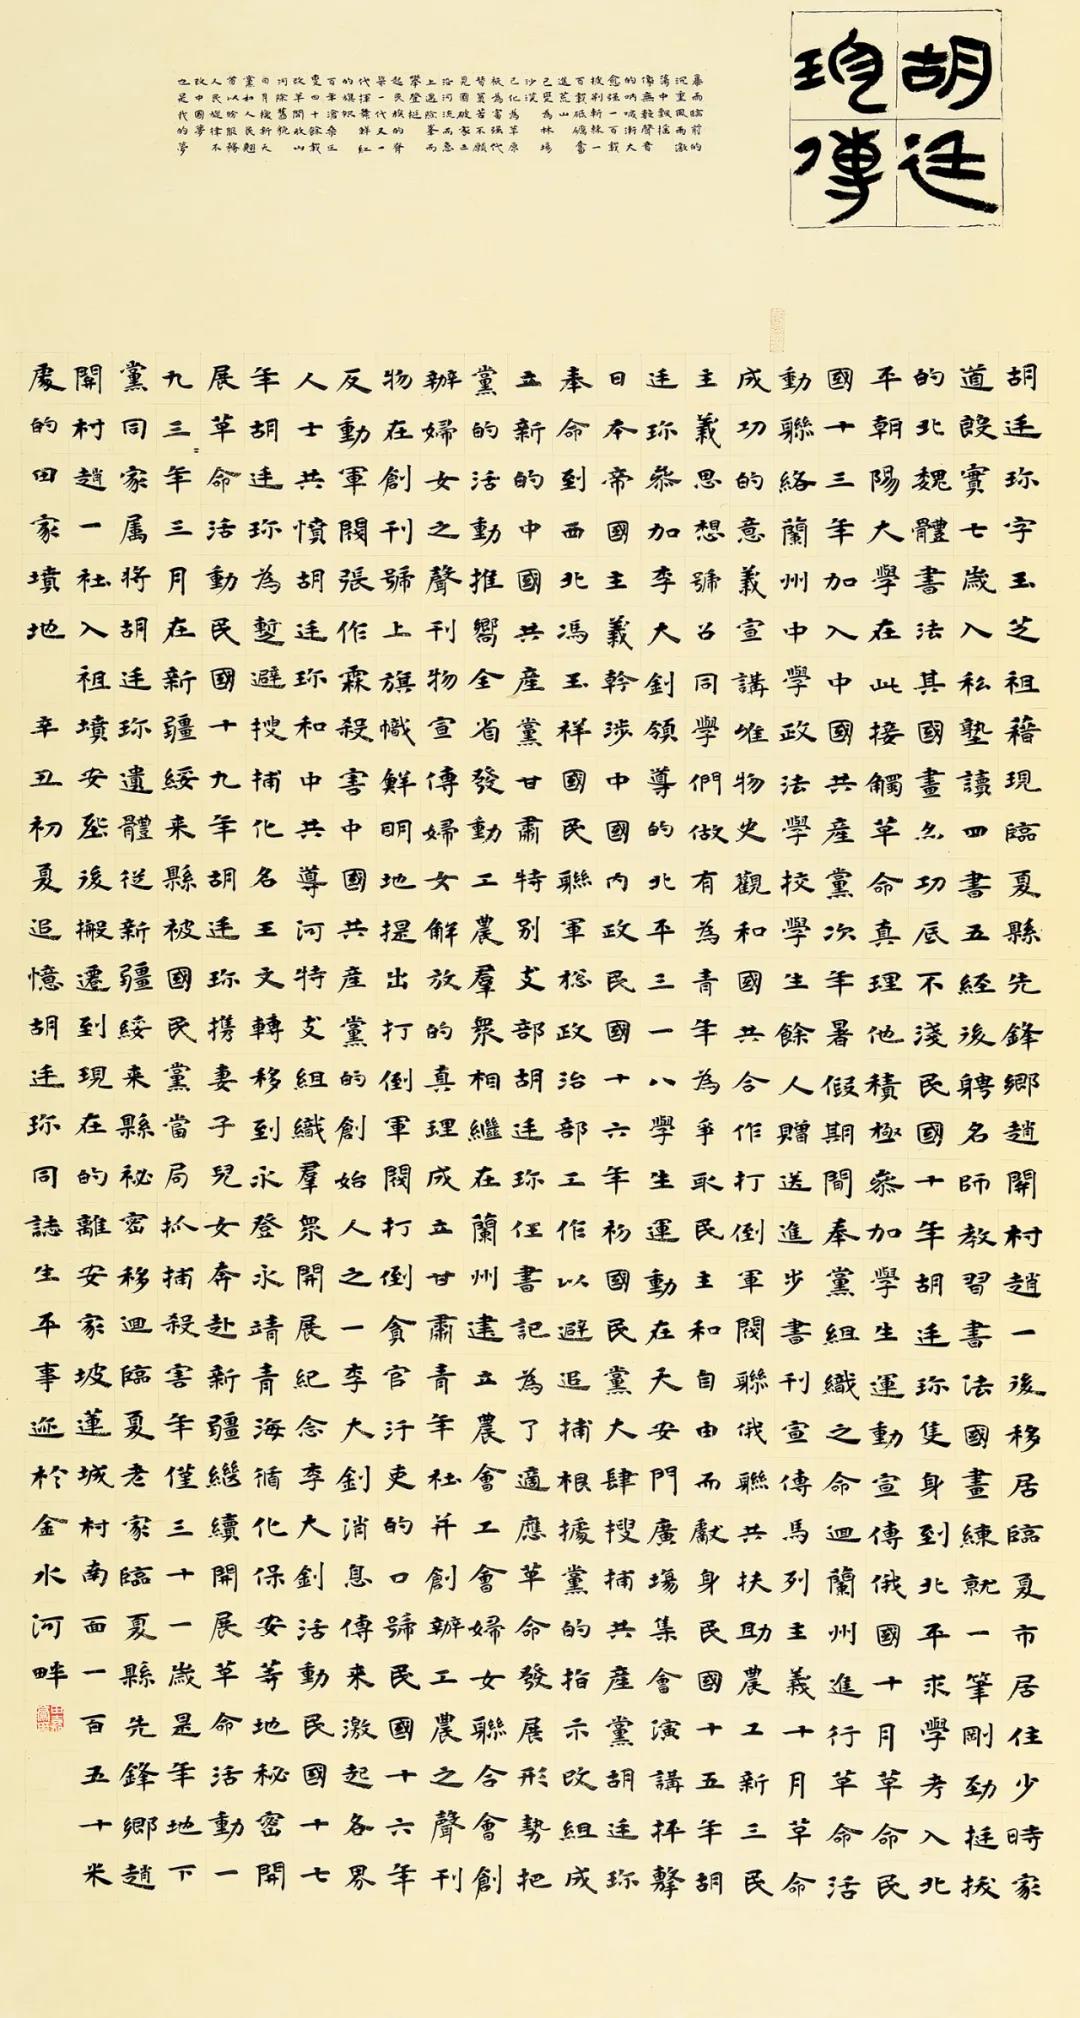 胡廷
珎傳
暴雨臨前的
沉重風雨激
蕩中飄搖
像無數聲音
的吶喊漸大
愈強一百載
披荆斬棘一
百載砥礪奮
進荒山
已變為林場
沙漠
已化為草原
見國破家亡
攀登挺
起民族的脊
梁一代又一
代揮舞鮮紅
的旗幟
百年滄桑正
變四十餘載
改革開放山
河除舊貌
日月換新天
黨和人民翹
人民旋律不
改中國夢
也是我的夢
胡廷珎字玉芝祖藉現臨夏縣先鋒鄉趙開村趙一後移居臨夏市居住少時家
道殷實七歲入私塾讀四書五經後聘名師教習書法國畫練就一筆剛勁挺拔
的北魏體書法其國畫亦功底不淺民國十年胡廷珎隻身到北平求學考入北
平朝陽大學在此接觸革命真理他積極參加學生運動宣傳俄國十月革命民
國十三年加入中國共產黨次年暑假期間奉黨組織之命迴蘭州進行革命活
動聯絡蘭州中學政法學校學生餘人贈送進步書刊宣傳馬列主義十月革命
成功的意義宣講唯物史觀和國共合作打倒軍閥聯俄聯共扶助農工新三民
主義思想號召同學們做有為青年為爭取民主和自由而獻身民國十五年胡
廷珎參加李大釗領導的北平三一八學生運動在天安門廣場集會演講抨擊
日本帝國主義幹涉中國內政民國十六年初國民黨大肆搜捕共產黨胡廷珎
奉命到西北馮玉祥國民聯軍總政治部工作以避追捕根據黨的指示改組成
立新的中國共產黨甘肅特別支部胡廷珎任書記為了適應革命發展形勢把
黨的活動推嚮全省發動工農羣衆相繼在蘭州建立農會工會婦女聯合會創
辦婦女之聲刊物宣傳婦女解放的真理成立甘肅青年社并創辦工農之聲刊
物在創刊號上旗幟鮮明地提出打倒軍閥打倒貪官汙吏的口號民國十六年
反動軍閥張作霖殺害中國共產黨的創始人之一李大釗消息傳来激起各界
人士共憤胡廷珎和中共導河特支組織羣衆開展紀念李大釗活動民國十七
年胡廷珎為暫避搜捕化名王文轉移到永登永靖青海循化保安等地秘密開
展革命活動民國十九年胡廷珎携妻子兒女奔赴新疆繼續開展革命活動一
九三年三月在新疆綏来縣被國民黨當局抓捕殺害年僅三十一歲是年地下
黨同家属將胡廷珎遺體從新疆綏来縣秘密移迴臨夏老家臨夏縣先鋒鄉趙
開村趙一社入祖墳安厝後搬遷到現在的離安家坡蓮城村南面一百五十米
處的田家墳地 辛丑初夏追憶胡廷珎同誌生平事迹於金水河畔